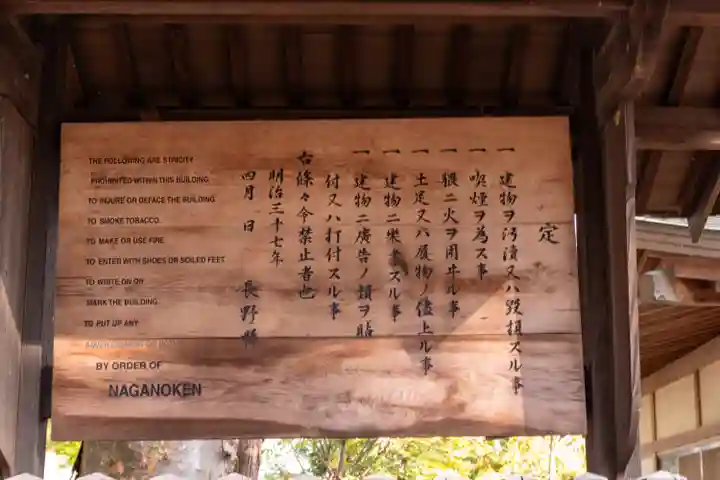 定
一 建物ヲ汚瀆又ハ毀損スル事
一 喫煙ヲ為ス事
一 猥ニ火ヲ用ヰル事
一 土足又ハ履物ノ儘上ル事
一 建物ニ樂書スル事
一 建物ニ廣告ノ類ヲ貼
付又ハ打付スル事
右條々令禁止者也
明治三十七年
四月 日 長野縣
THE FOLLOWING ARE STRICTLY
PROHIBITED WITHIN THIS BUILDING.
TO INJURE OR DEFACE THE BUILDING.
TO SMOKE TOBACCO.
TO MAKE OR USE FIRE.
TO ENTER WITH SHOES OR SOILED FEET.
TO WRITE ON OR
MARK THE BUILDING.
TO PUT UP ANY
BY ORDER OF
NAGANOKEN